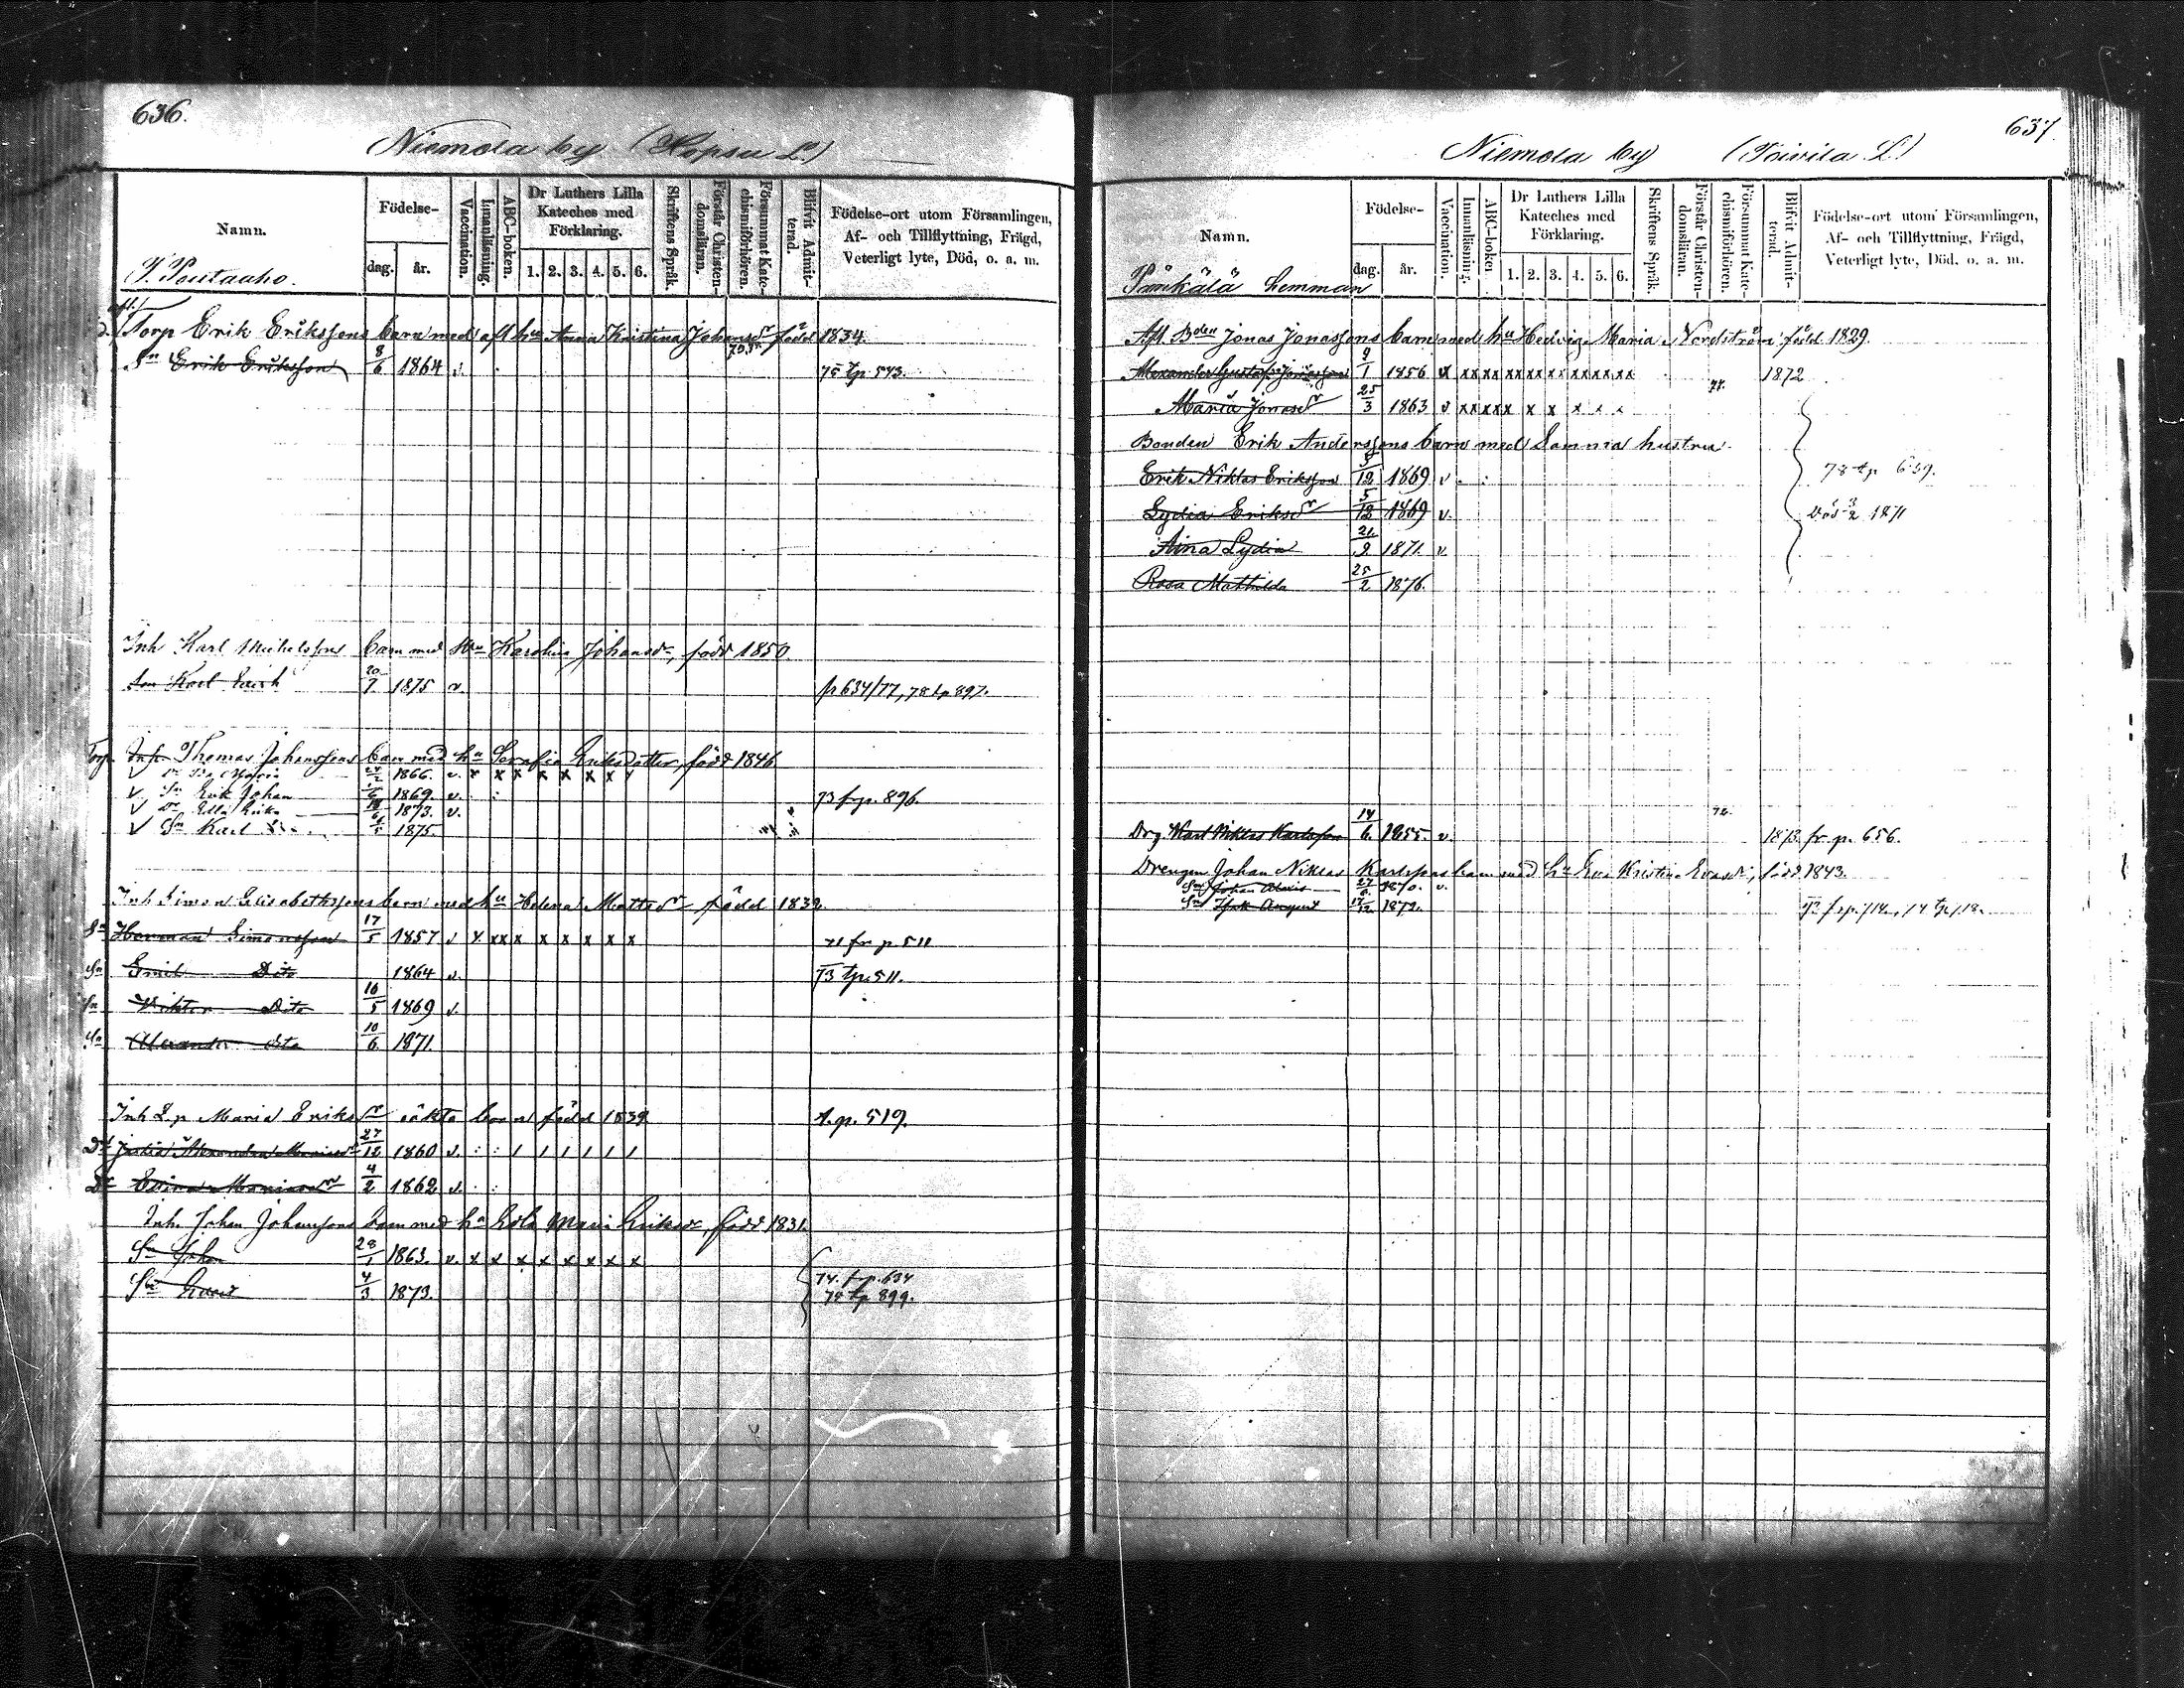 636.
Niemola by (Hopsu L.)
Namn.
Födelse-
dag.
år.
Vaccination.
Innanläsning.
ABC-boken.
Dr Luthers Lilla
Kateches med
Förklaring.
1. 2. 3. 4. 5. 6.
Skriftens Språk.
Förstår Christen-
domsläran.
Försummat Kate-
chismiförhören.
Blifvit Admit-
terad.
Födelse-ort utom Församlingen,
Af- och Tillflyttning, Frägd,
Veterligt lyte, Död, o. a. m.
Poutaaho.
Torp Erik Erikssons barn med afl hu Anna Kristina Johansdr född 1834
Sn Erik Eriksson 8/6 1864 v. 75 tp 543.
Inh Karl Michelssons barn med hu Karolina Johansdr, född 1850.
Son Karl 20/7 1875 v. p 634/77, 78 tp 897.
Torp. Inh Thomas Johanssons barn med hu Serafia Eriksdotter, född 1846
1866. v. x x x x x x x
Sn Erik Johan 1869. v. 73 frp. 896.
1873. v.
Sn Karl 1875.
Inh Simon Elisabethssons barn med hu Helena Mattsdr född 1832
Sn Herman Simonsson 17/5 1857 v x xx x x x x x x 71 fr p. 511
Sn Emil Dito 1864 v. 73 tp. 511.
Sn Viktor Dito 16/5 1869 v.
Sn Alexander dito 10/6 1871.
Inh L.p Maria Eriksdr oäkta barn född 1839 t.p. 519.
Dr Alexandra Mariasdr 27/12 1860 v. : : / / / / / /
Dr Mariasdr 4/2 1862 v. : :
Inh. Johan Johanssons barn med hu Maria Eriksdr, född 1831.
Sn Johan 28/1 1863. v. x x x x x x x x
Sn 4/3 1873.
74. frp. 634
78 tp 899.
637.
Niemola by (Toivila L.)
Namn.
Födelse-
dag.
år.
Vaccination.
Innanläsning.
ABC-boken
Dr Luthers Lilla
Kateches med
Förklaring.
1. 2. 3. 4. 5. 6.
Skriftens Språk.
Förstår Christen-
domsläran.
Försummat Kate-
chismiförhören.
Blifvit Admit-
terad.
Födelse-ort utom Församlingen,
Af- och Tillflyttning, Frägd,
Veterligt lyte, Död, o. a. m.
hemman
Afl. Bden Jonas Jonassons barn med hu Hedvig Maria Nordström född 1829.
Alexander Gustaf Jonasson 9/1 1856 x xx xx xx xx xx xx xx 1872
Maria Jonasdr 25/3 1863 v xx xx x x x x x x
Bonden Erik Anderssons barn med Samma hustru.
Erik Niklas Eriksson 5/12 1869 v. 78 tp 639.
Lydia Eriksdr 5/12 1869 v. död 3/2 1871
Aina Lydia 21/9 1871. v.
Rosa Mathilda 25/2 1876.
Drg. Karl Niklas Karlsson 14/6 1855. v. 1873. fr p. 656.
Drengen Johan Niklas Karlssons barn med hu Eva Kristina född 1843.
Son Johan 27/6 1870. v.
Sn August 1872.